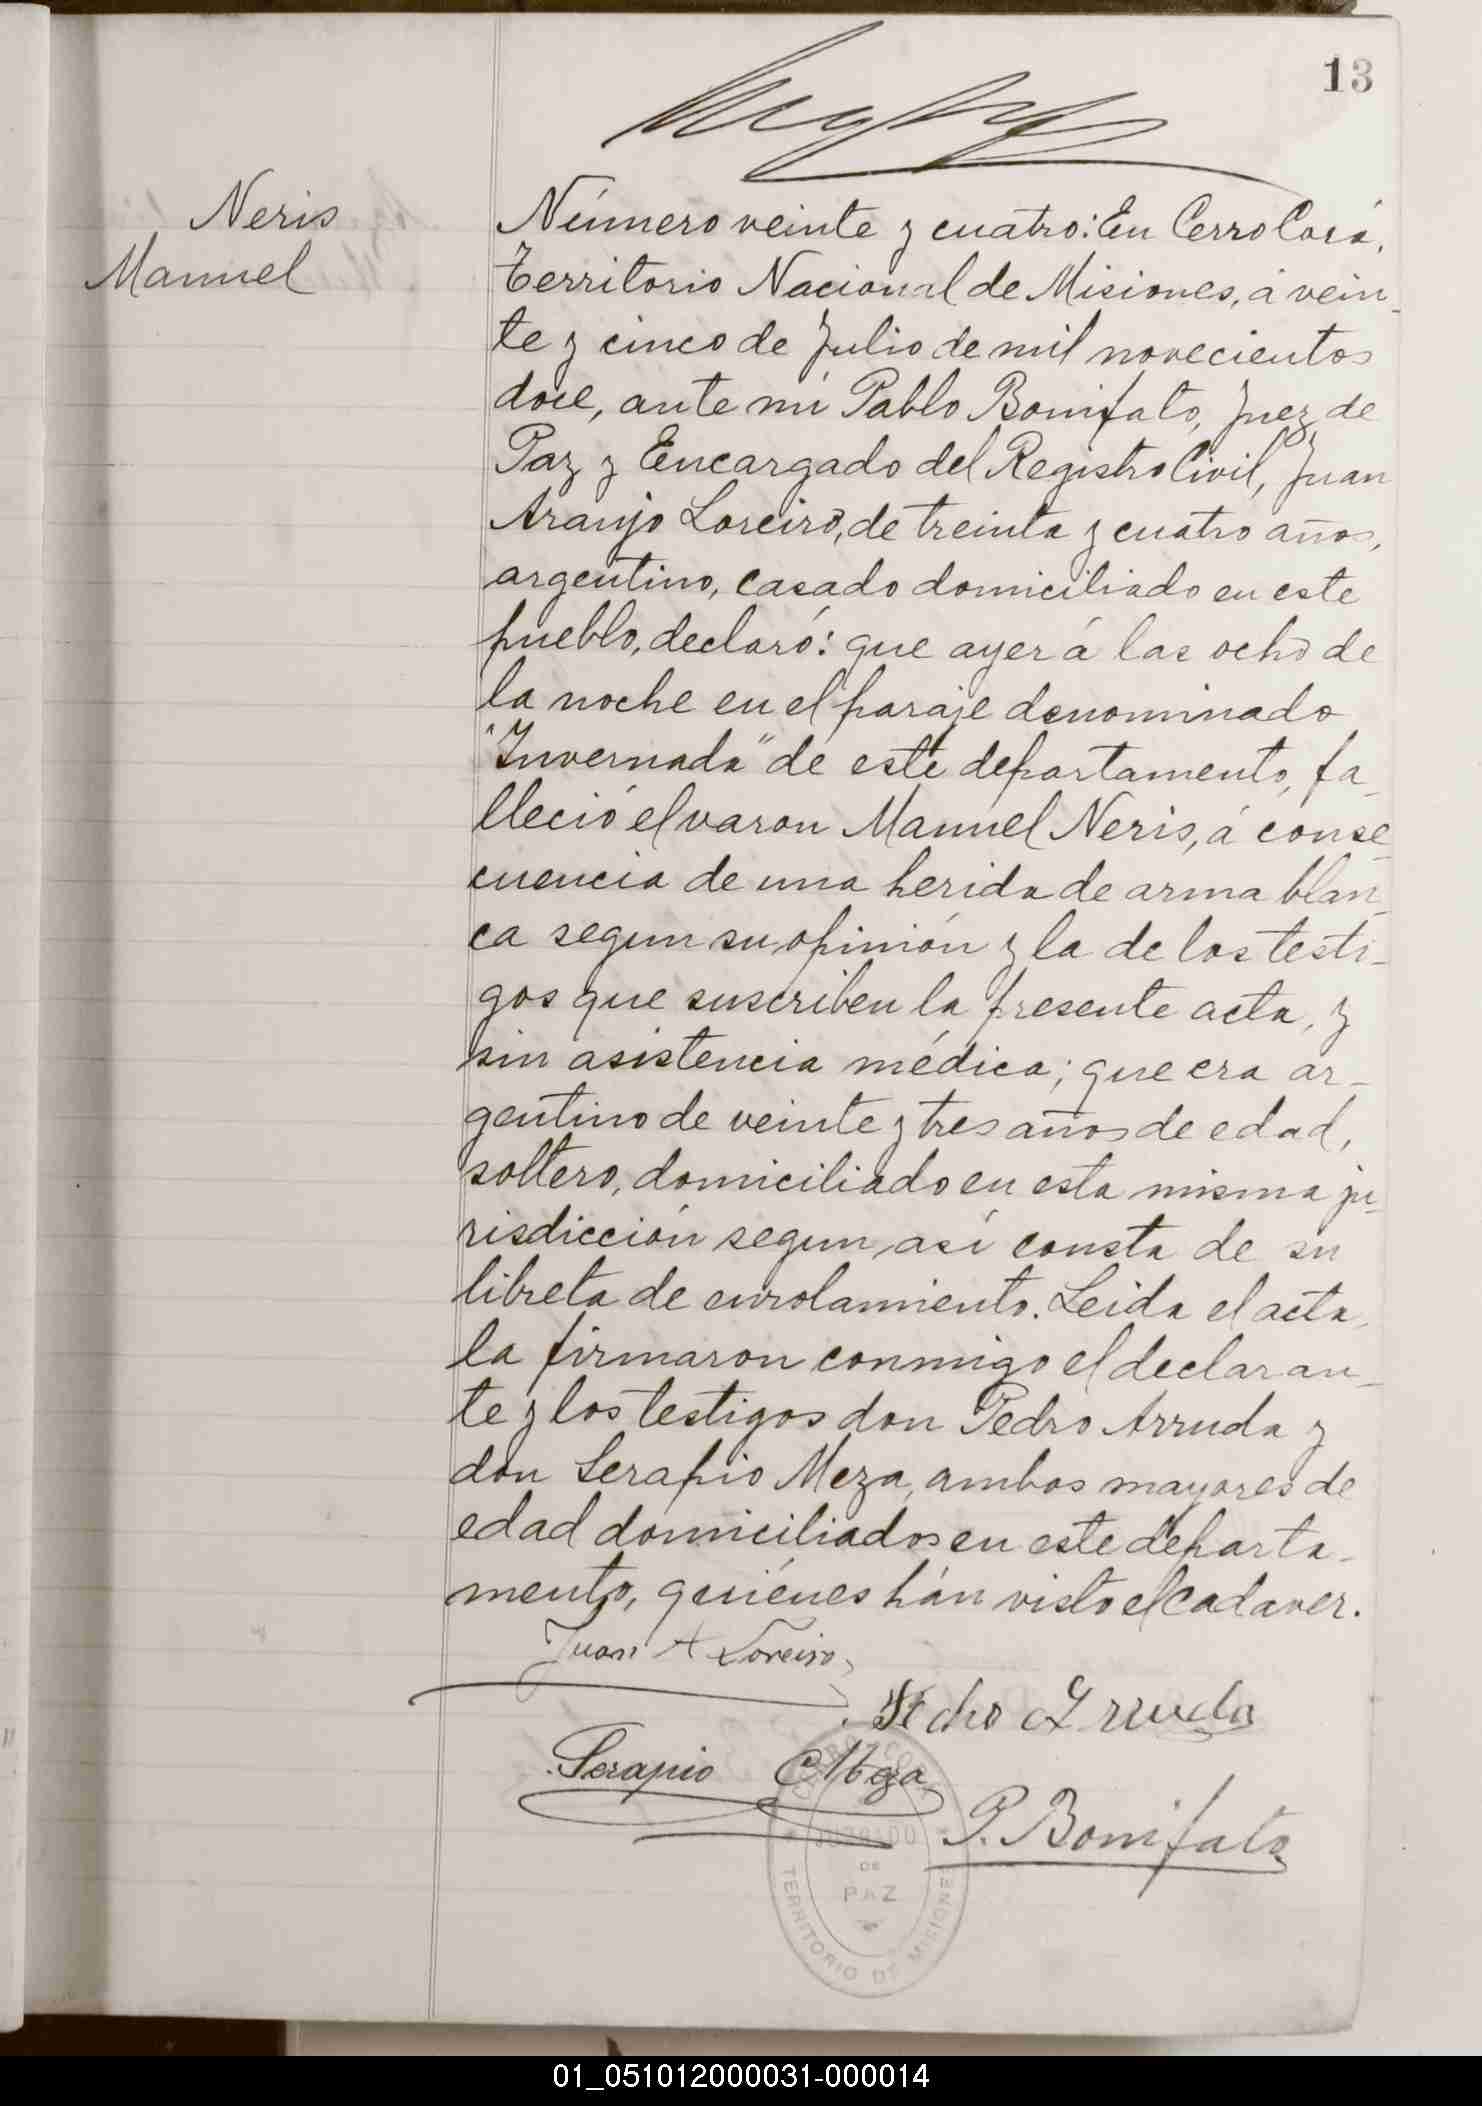 13
Neris
Manuel
Número veinte y cuatro: En Cerro Corá,
Territorio Nacional de Misiones, á vein-
te y cinco de Julio de mil novecientos
doce, ante mí Pablo Bonifato, Juez de
Paz y Encargado del Registro Civil, Juan
Araujo Loreiro, de treinta y cuatro años,
argentino, casado domiciliado en este
pueblo, declaró: que ayer á las ocho de
la noche en el paraje denominado
"Invernada" de este departamento, fa-
lleció el varon Manuel Neris, á conse-
cuencia de una herida de arma blan-
ca segun su opinión y la de los testi-
gos que suscriben la presente acta, y
sin asistencia médica; que era ar-
gentino de veinte y tres años de edad,
soltero, domiciliado en esta misma ju-
risdicción segun así consta de su
libreta de enrolamiento. Leida el acta,
la firmaron conmigo el declaran-
te y los testigos don Pedro Arruda y
don Serapio Meza, ambos mayores de
edad domiciliados en este departa-
mento, quiénes hán visto el cadaver.
Juan A Loreiro
Pedro Arruda
Serapio Meza
P. Bonifato
JUZGADO
DE
PAZ
TERRITORIO DE MISIONES
01_051012000031-000014